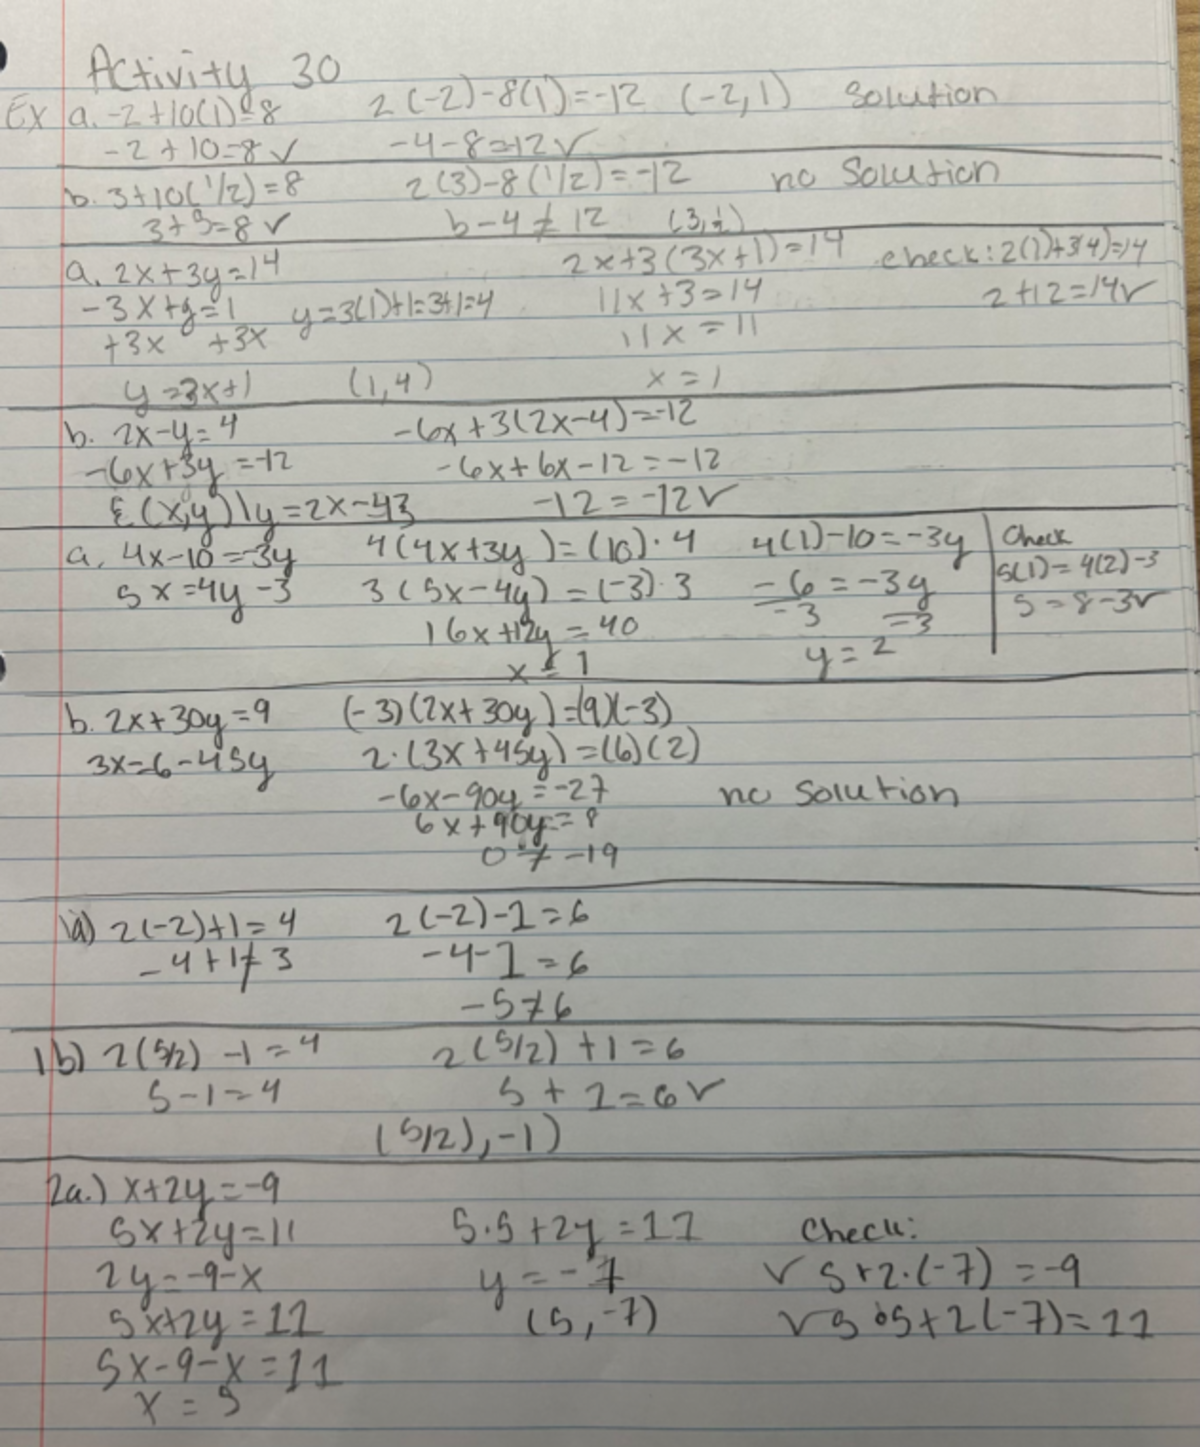 Activity 30
Ex a. -2+10(1)=8 2(-2)-8(1)=-12 (-2,1) Solution
-2+10=8 ✓ -4-8=-12 ✓
b. 3+10(1/2)=8 2(3)-8(1/2)=-12 no Solution
3+5=8 ✓ 6-4≠12 (3,½)
a. 2x+3y=14 2x+3(3x+1)=14 check: 2(1)+3(4)=14
-3x+y=1 y=3(1)+1=3+1=4 11x+3=14 2+12=14✓
+3x +3x 11x=11
y=3x+1 (1,4) x=1
b. 2x-y=4 -6x+3(2x-4)=-12
-6x+3y=-12 -6x+6x-12=-12
{(x,y)|y=2x-4} -12=-12✓
a. 4x-10=-3y 4(4x+3y)=(10)·4 4(1)-10=-3y Check
5x=4y-3 3(5x-4y)=(-3)·3 -6=-3y 5(1)=4(2)-3
16x+12y=40 -3 -3 5=8-3✓
x=1 y=2
b. 2x+30y=9 (-3)(2x+30y)=(9)(-3)
3x=6-45y 2·(3x+45y)=(6)(2)
-6x-90y=-27 no solution
6x+90y=8
0≠-19
1a) 2(-2)+1=4 2(-2)-1=6
-4+1≠3 -4-1=6
-5≠6
1b) 2(5/2)-1=4 2(5/2)+1=6
5-1=4 5+1=6✓
(5/2),-1)
2a.) x+2y=-9
5x+2y=11 5·5+2y=11 Check:
2y=-9-x y=-7 ✓ 5+2·(-7)=-9
5x+2y=11 (5,-7) ✓ 5·5+2(-7)=11
5x-9-x=11
x=5